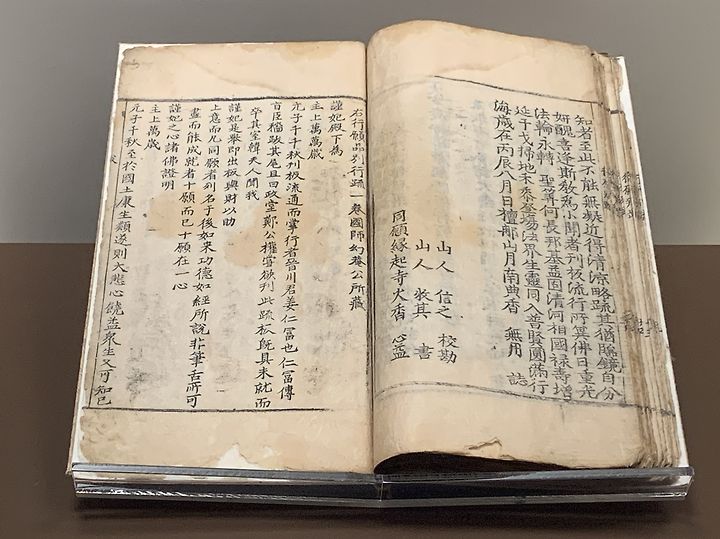 知者至此不能無礙近得清涼略疏其猶臨鏡自分
妍醜喜逢斯教爲小聞者刊板流行所冀佛日重光
法輪永轉 聖壽何長邦基益固清河相國祿壽增
延干戈掃地未忝登蕩法界生靈同入普賢圓滿行
海歲在丙辰八月日檀那山月南曲香 無用 誌
山人 信之 校勘
山人 敎其 書
同願緣起寺大香 心益
右行願品別行疏一卷國師幻菴公所藏
謹妃殿下為
主上萬萬歲
元子千千秋刊板流通而掌行者晉川君姜仁冨也仁冨傳
旨臣穡跋其尾且曰政堂鄭公權嘗欲刊此疏板旣具未就而
卒其室韓夫人聞我
謹妃是舉即出板與財以助
上意而凡同願者列名于後如来功德如經所說非筆舌所可
盡而能成就者十願而已十願在一心
謹妃之心諸佛證明
主上萬歲
元子千秋至於國土康生類遂則大悲心饒益衆生又可知已